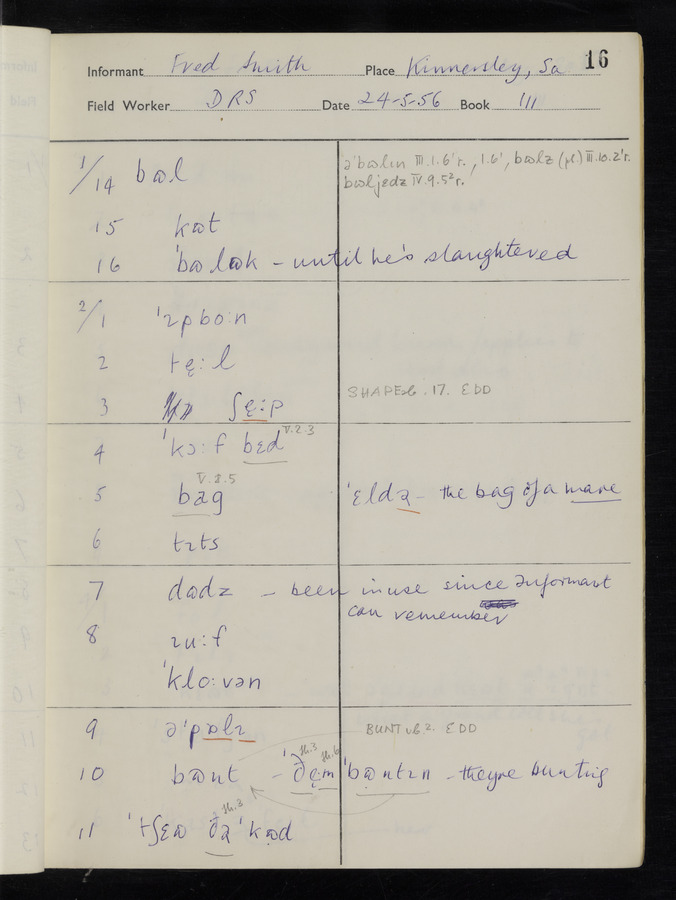 16
Informant Fred Smith Place Kinnersley, Sa
Field Worker DRS Date 24-5-56 Book III
1/14 bɷl
ə'bɷlɪn III.1.6'r., 1.6', bɷlz (pl.) III.10.2'r.
bɷljedz IV.9.5²r.
15 kɷt
16 'bɷlɷk – until he's slaughtered
2/1 'ɪpbo:n
2 tę:l
3 ʃę:p
SHAPE sb. 17. EDD
4 'kɔ:f bɛd V.2.3
5 bag V.8.5
'ɛldə – the bag of a mare
6 tɪts
7 dɷdz – been in use since informant
can remember
8 ɪu:f
'klo:vən
9 ə'pɷlɪ
BUNT vb². EDD
10 bɷnt – 'ðęɪm 'bɷntɪn – they're bunting
th.3 th.6
11 'tʃɛɷ ðə 'kɷd
th.3